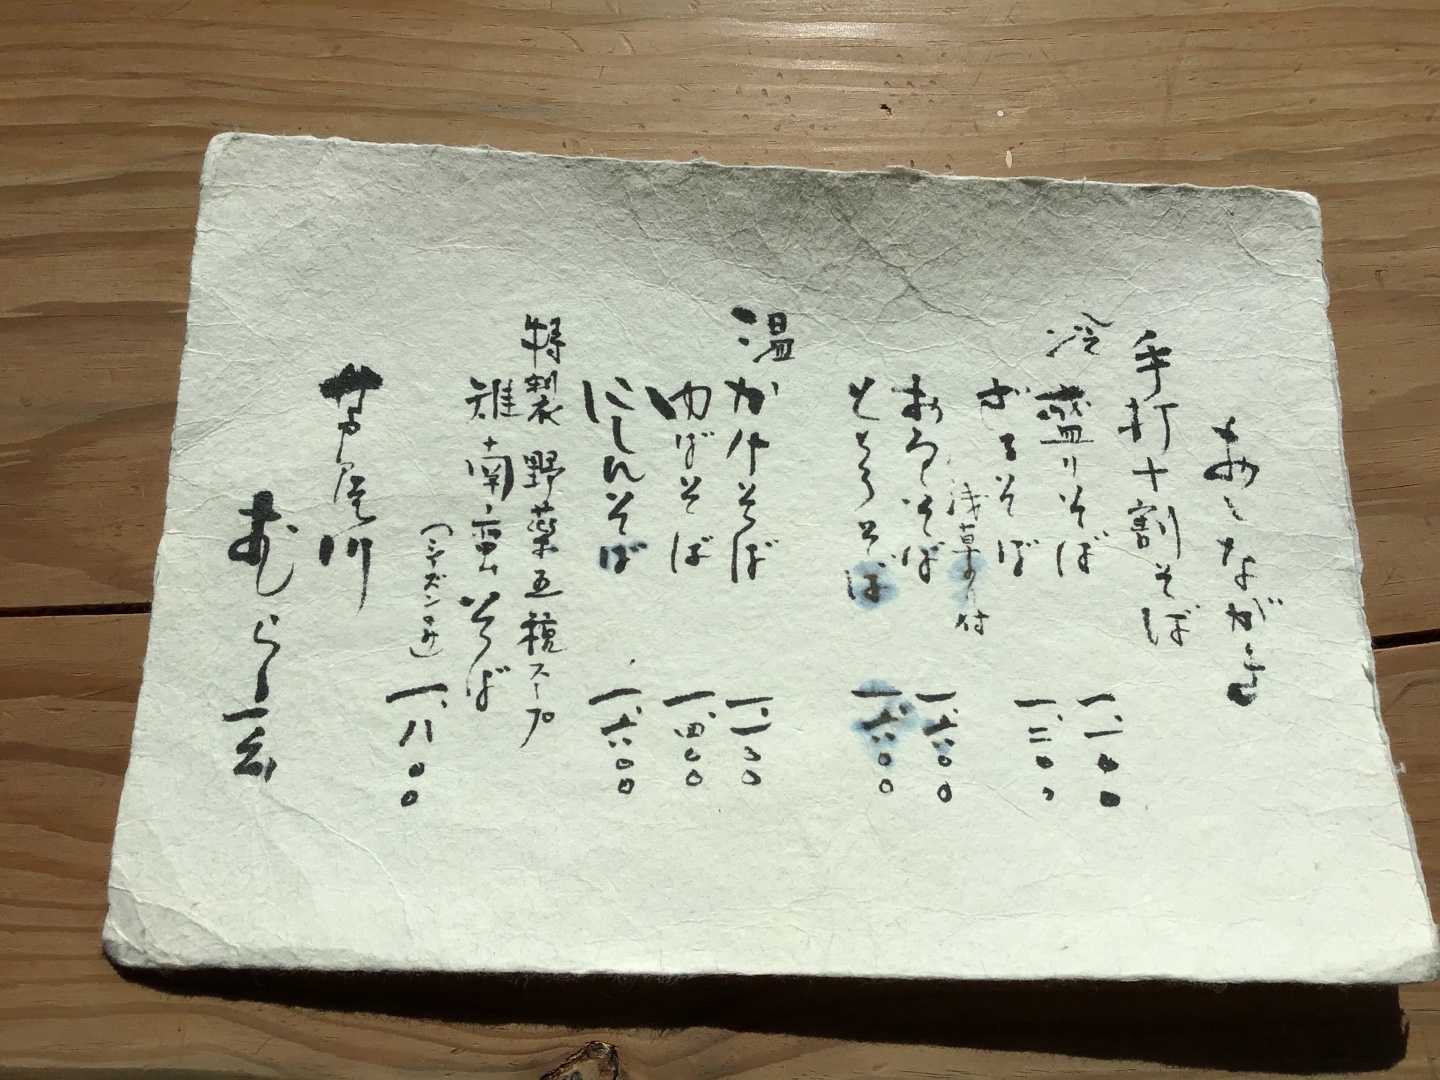 おしながき
手打十割そば
冷
盛りそば 一、一〇〇
ざるそば 一、二〇〇
浅草のり付
おろしそば 一、六〇〇
とろろそば 一、六〇〇
温
かけそば 一、一〇〇
ゆばそば 一、四〇〇
にしんそば 一、六〇〇
特製 野薬五種スープ
雉南蛮そば
(シーズンのみ) 一、八〇〇
芦屋川
むら玄